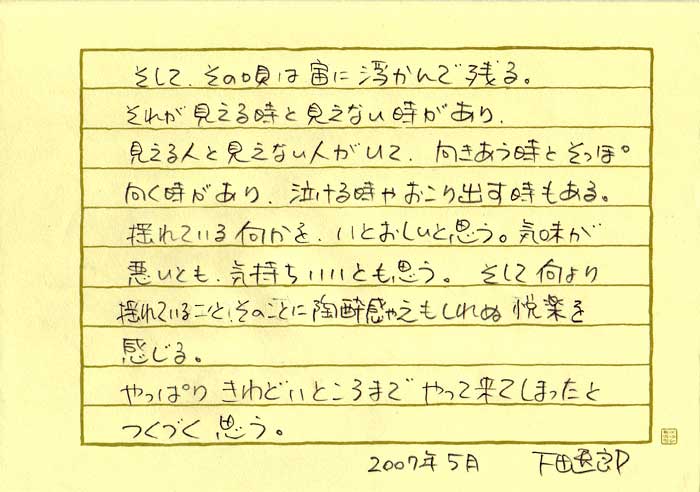 そして、その唄は宙に浮かんで残る。
それが見える時と見えない時があり、
見える人と見えない人がいて、向きあう時とそっぽ
向く時があり、泣ける時やおこり出す時もある。
揺れている何かを、いとおしいと思う。気味が
悪いとも、気持ちいいとも思う。そして何より
揺れていること、そのことに陶酔感やえもしれぬ悦楽を
感じる。
やっぱりきわどいところまでやって来てしまったと
つくづく思う。
2007年5月 下田逸郎